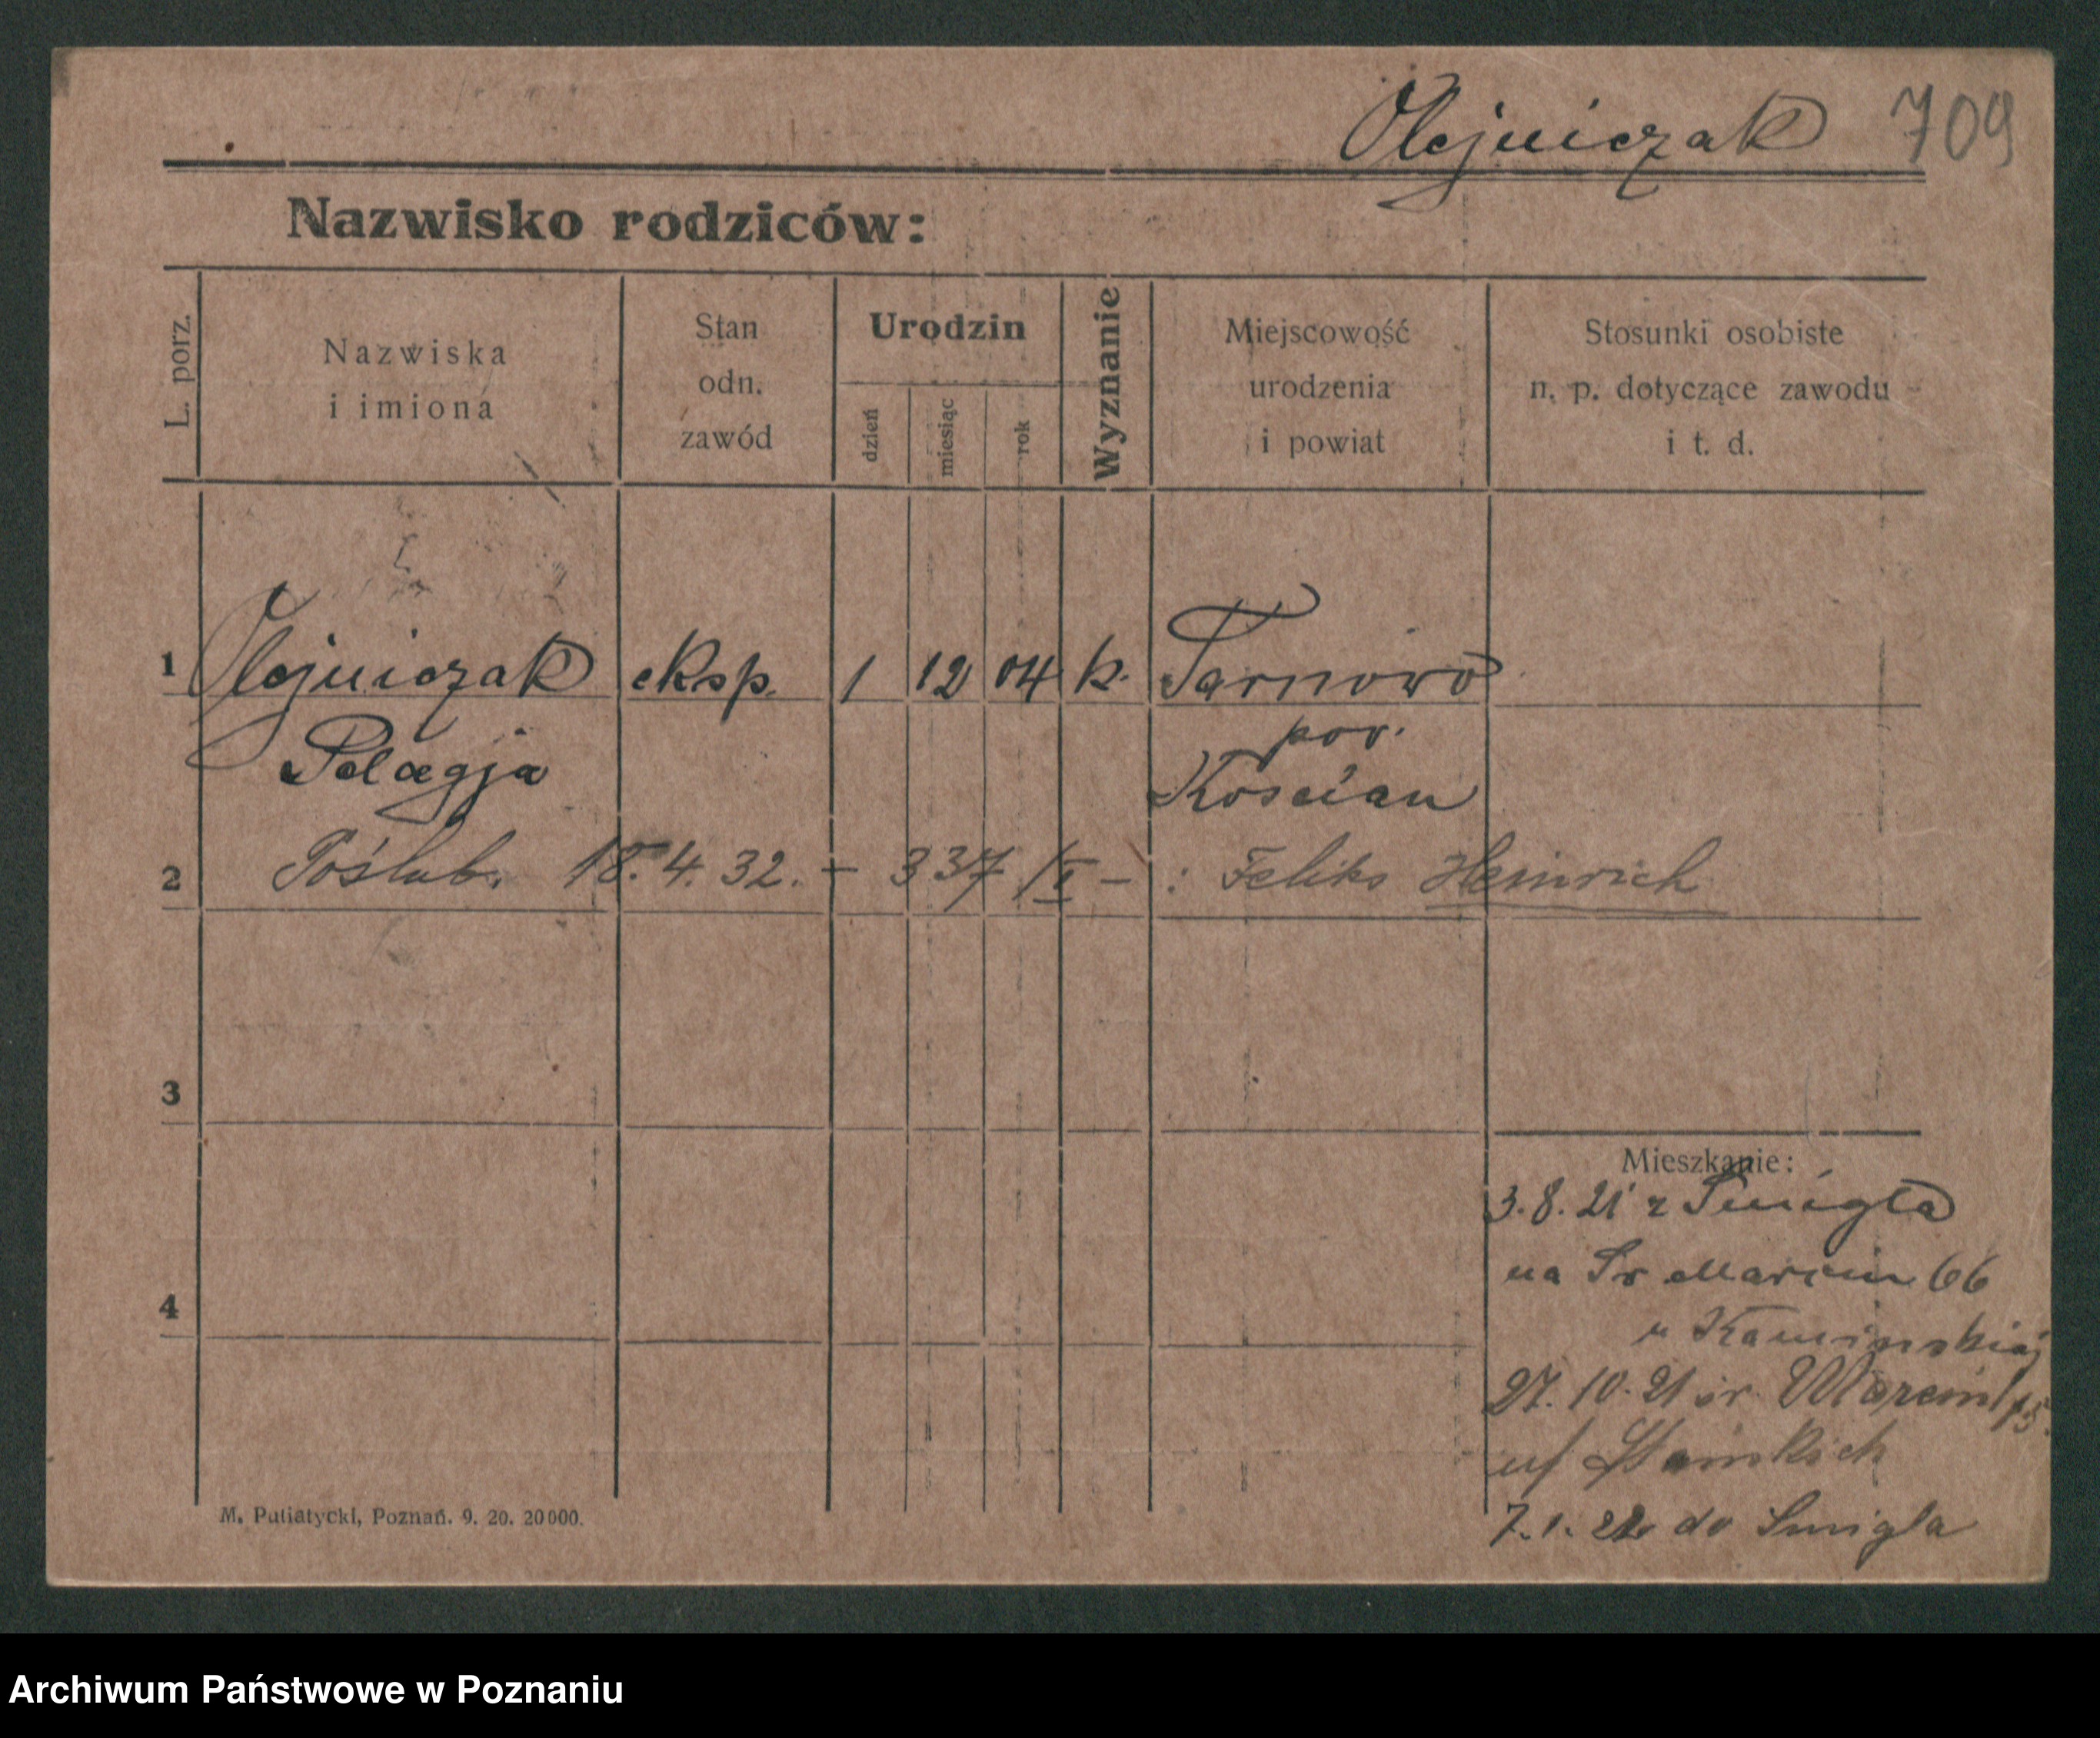 Olejniczak 709
Nazwisko rodziców:
L. porz.
Nazwiska
i imiona
Stan
odn.
zawód
Urodzin
dzień
miesiąc
rok
Wyznanie
Miejscowość
urodzenia
i powiat
Stosunki osobiste
n. p. dotyczące zawodu
i t. d.
1 Olejniczak eksp. 1 12 04 k. Tarnowo
Pelagja
pow.
Kościan
2 Poślub. 18. 4. 32. – 337/I – : Feliks Heinrich
3
Mieszkanie:
3. 8. 21 z Śmigla
na Św Marcin 66
4
u Kamińskiej
27. 10. 21 św. Marcin
7. 1. 22 do Smigla
M. Putiatycki, Poznań. 9. 20. 20000.
Archiwum Państwowe w Poznaniu